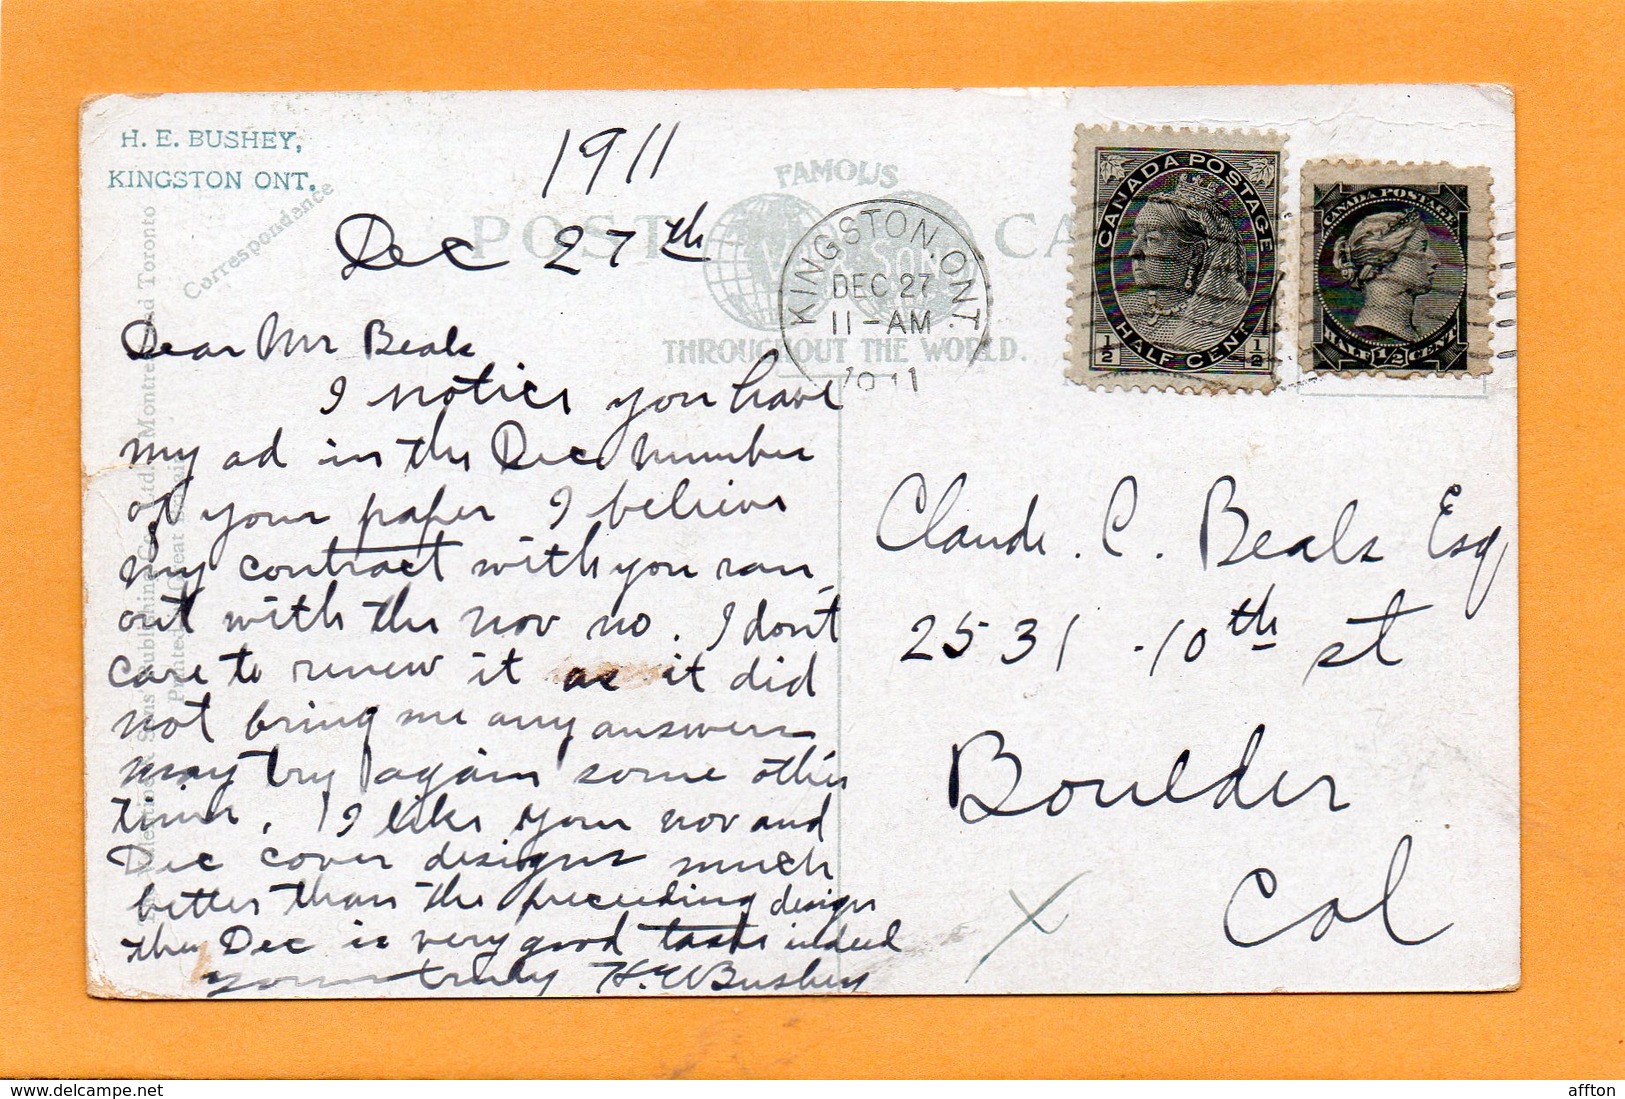 H. E. BUSHEY,
KINGSTON ONT.
Correspondance
1911
FAMOUS
POST CA
THROUGHOUT THE WORLD.
KINGSTON. ONT.
DEC 27
11-AM
1911
CANADA POSTAGE
HALF CENT
1/2 1/2
CANADA POSTAGE
HALF 1/2 CENT
Dec 27th
Dear Mr Beals
I notice you have
my ad in the Dec number
of your paper I believe
my contract with you ran
out with the nov no. I don't
care to renew it as it did
not bring me any answers
may try again some other
time. I like your nov and
Dec cover designs much
better than the preceeding design
the Dec is very good taste indeed
yours truly H. E Bushey
Claude. C. Beals Esq
2531 -10th st
Boulder
Col
X
Montreal and Toronto
delcampe.net
affton